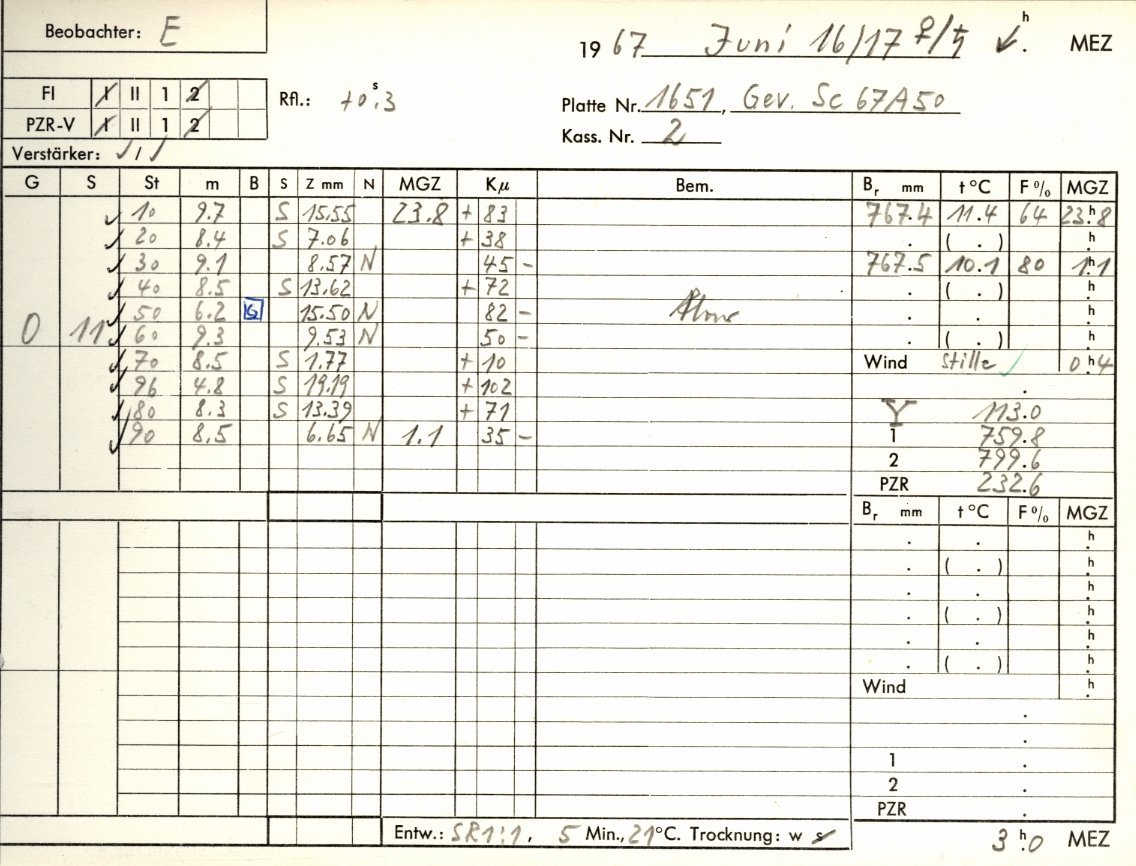 Beobachter: E
1967 Juni 16/17 ♀/♄ ↙ h. MEZ
FI I II 1 2
PZR-V I II 1 2
Rfl.: +0.s3
Platte Nr. 1651, Gev. Sc 67A50
Kass. Nr. 2
Verstärker: √/√
G S St m B S Z mm N MGZ Kμ Bem. Br mm t °C F % MGZ
√ 10 9.7 S 15.55 23.8 + 83 767.4 11.4 64 23.h8
√ 20 8.4 S 7.06 + 38 . ( . ) .h
√ 30 9.1 8.57 N 45 - 767.5 10.1 80 1.h1
√ 40 8.5 S 13.62 + 72 . ( . ) .h
√ 50 6.2 15.50 N 82 - . . .h
0 11 √ 60 9.3 9.53 N 50 - . ( . ) .h
√ 70 8.5 S 1.77 + 10 Wind Stille √ 0.h4
√ 96 4.8 S 19.19 + 102 .
√ 80 8.3 S 13.39 + 71 Y 113.0
√ 90 8.5 6.65 N 1.1 35 - 1 759.8
2 799.6
PZR 232.6
Br mm t °C F % MGZ
. . .h
. ( . ) .h
. . .h
. ( . ) .h
. . .h
. ( . ) .h
Wind .h
.
.
1 .
2 .
PZR .
Entw.: SR1:1, 5 Min., 21°C. Trocknung: w s
3.h0 MEZ